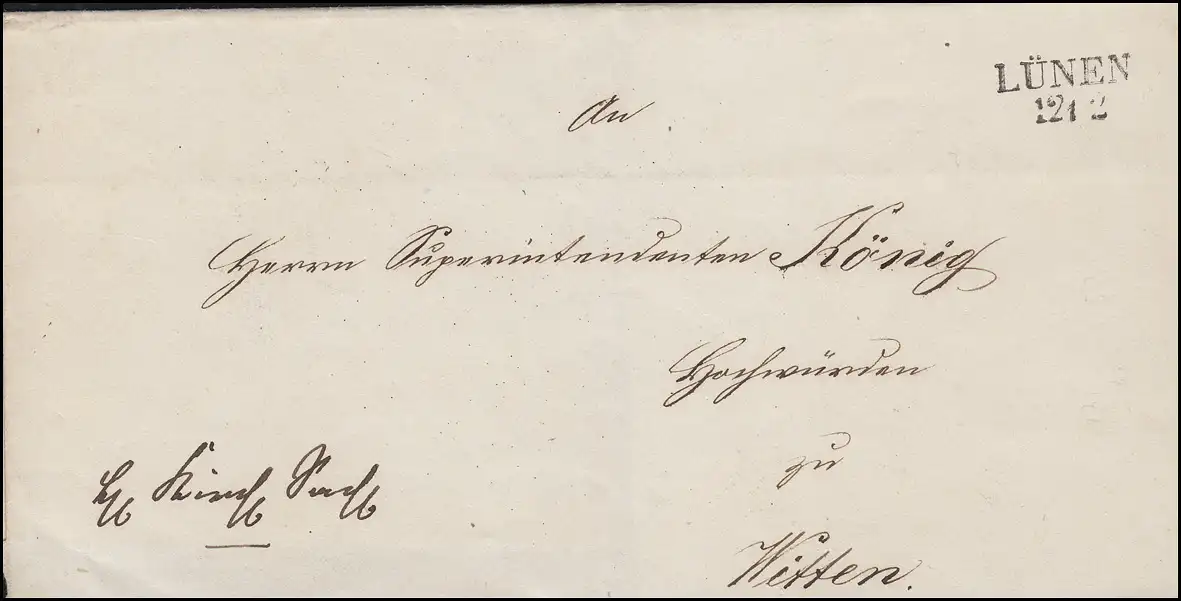 LÜNEN
12 1 2
An
Herrn Superintendenten König
Hochwürden
zu
Witten.
Kirch Sach